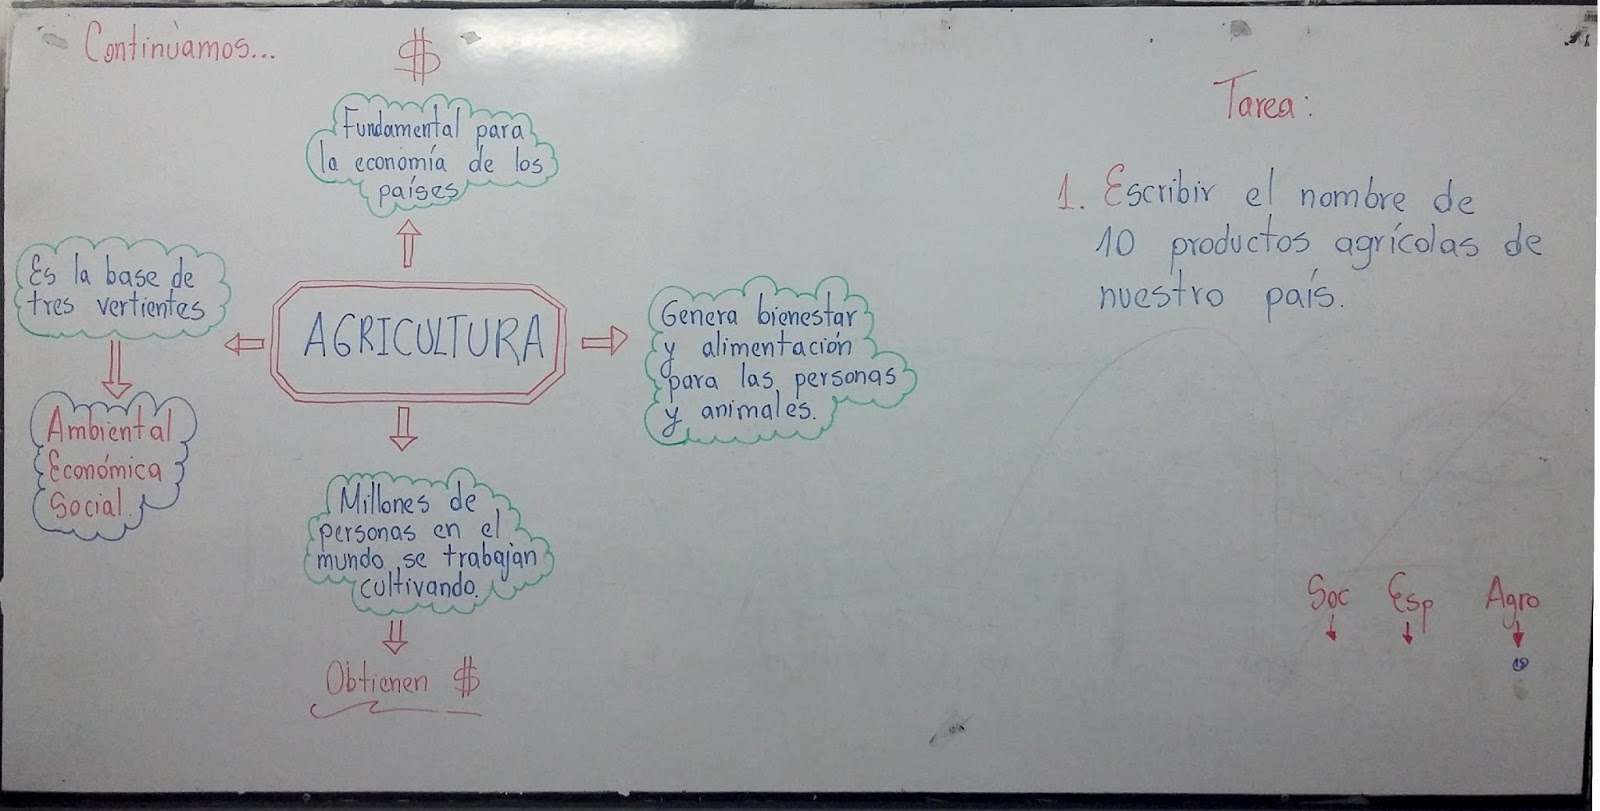 Continúamos...
$
Fundamental para
la economía de los
países
Es la base de
tres vertientes
Ambiental
Económica
Social.
AGRICULTURA
Genera bienestar
y alimentación
para las personas
y animales.
Millones de
personas en el
mundo se trabajan
cultivando.
Obtienen $
Tarea:
1. Escribir el nombre de
10 productos agrícolas de
nuestro país.
Soc Esp Agro